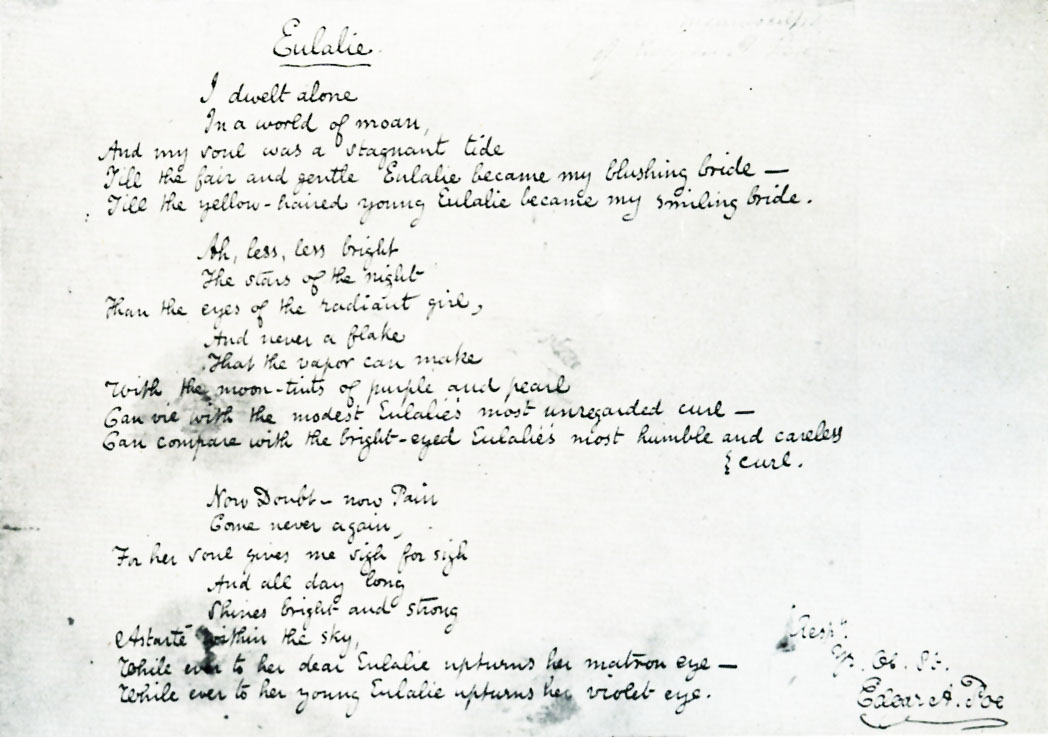 Eulalie.
I dwelt alone
In a world of moan,
And my soul was a stagnant tide
Till the fair and gentle Eulalie became my blushing bride —
Till the yellow-haired young Eulalie became my smiling bride.
Ah, less, less bright
The stars of the night
Than the eyes of the radiant girl,
And never a flake
That the vapor can make
With the moon-tints of purple and pearl
Can vie with the modest Eulalie's most unregarded curl —
Can compare with the bright-eyed Eulalie's most humble and careless
{curl.
Now Doubt — now Pain
Come never again,
For her soul gives me sigh for sigh
And all day long
Shines bright and strong
Astarté within the sky,
While ever to her dear Eulalie upturns her matron eye —
While ever to her young Eulalie upturns her violet eye.
Resply.
Yr. Ob. St.
Edgar A. Poe